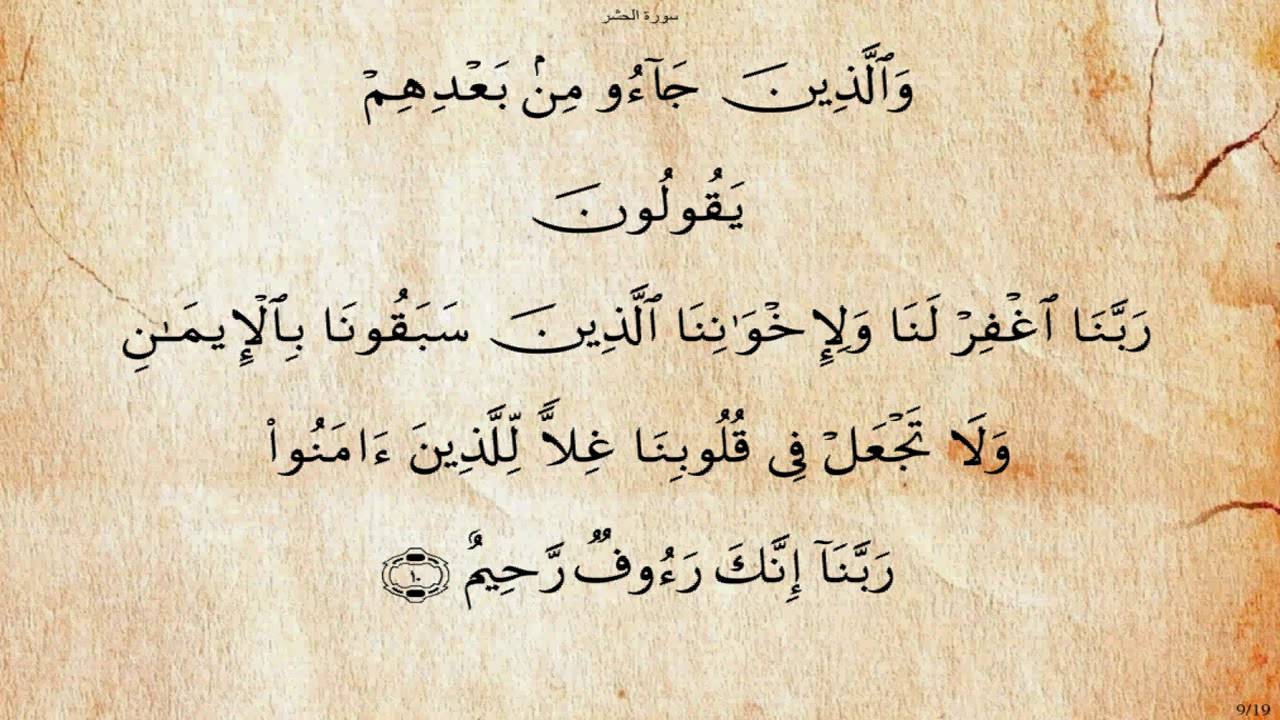 سورة الحشر
وَٱلَّذِينَ جَآءُو مِنۢ بَعْدِهِمْ
يَقُولُونَ
رَبَّنَا ٱغْفِرْ لَنَا وَلِإِخْوَٰنِنَا ٱلَّذِينَ سَبَقُونَا بِٱلْإِيمَـٰنِ
وَلَا تَجْعَلْ فِى قُلُوبِنَا غِلًّا لِّلَّذِينَ ءَامَنُوا۟
رَبَّنَآ إِنَّكَ رَءُوفٌ رَّحِيمٌ ١٠
9/19